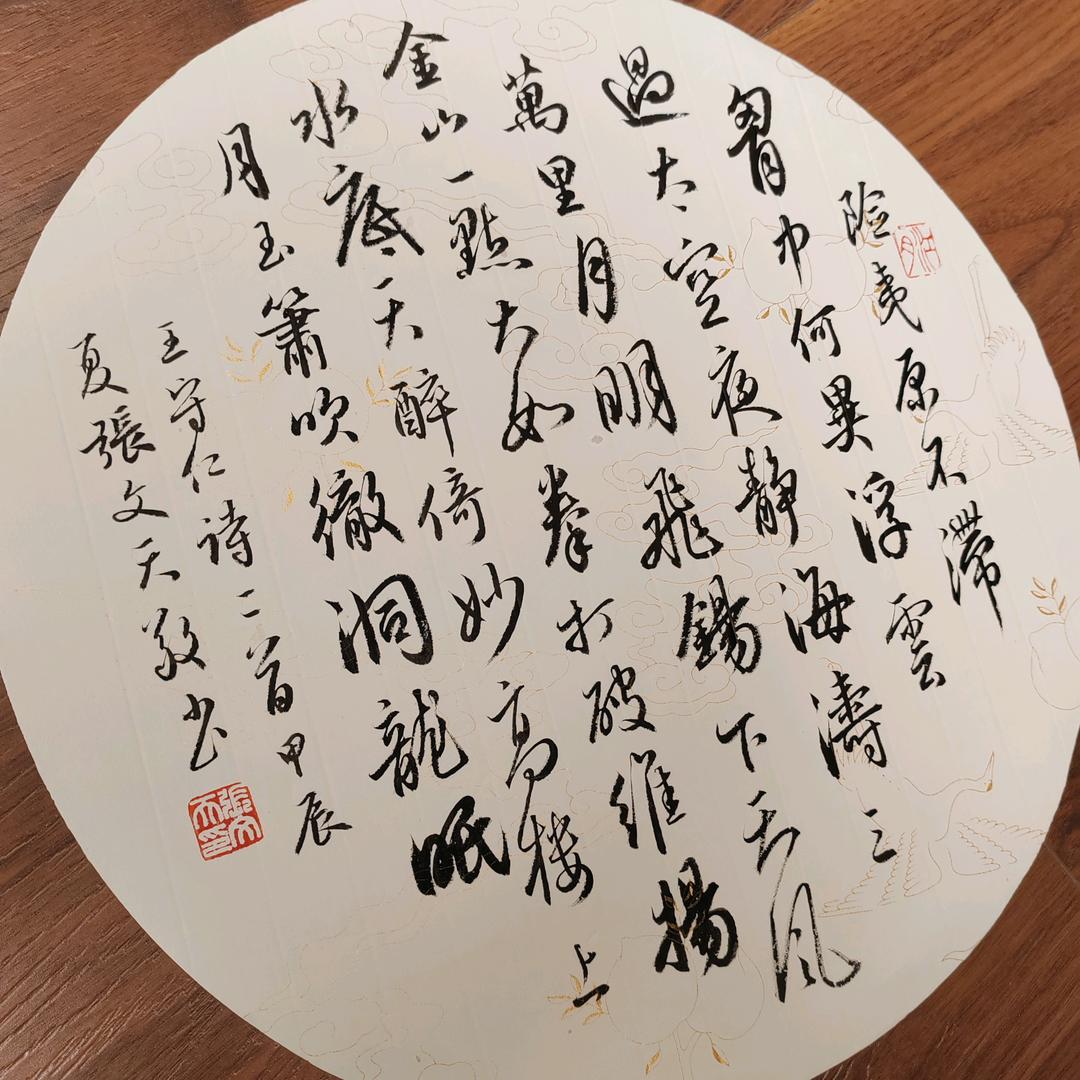 险夷原不滯
胷中何異浮雲
過太空夜靜海濤三
萬里月明飛錫下天風
金山一點大如拳打破維揚
水底天醉倚妙高楼上
月玉簫吹徹洞龍眠
王守仁诗二首甲辰
夏張文天敬书
張文天印